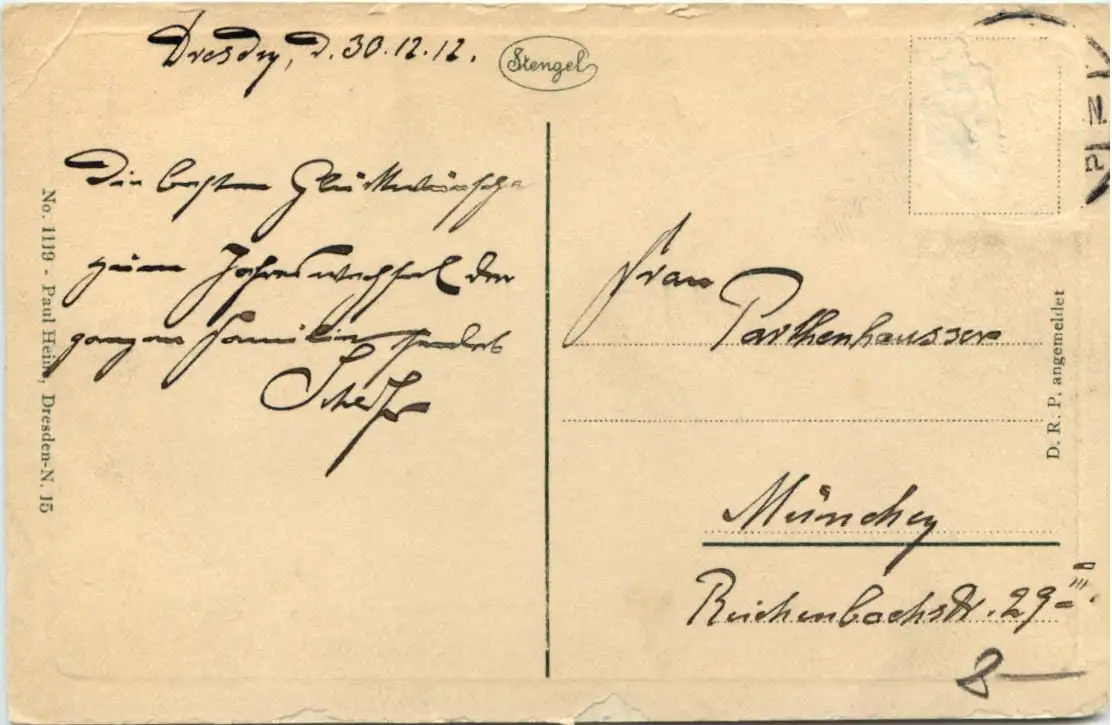 Dresden, d. 30.12.12.
Stengel
Die besten Glückwünsche
zum Jahreswechsel der
ganzen Familie sendet
No. 1119 - Paul Heine, Dresden-N. 15
Frau
Parthenhausser
München
Reichenbachstr. 29 III.
D. R. P. angemeldet
8